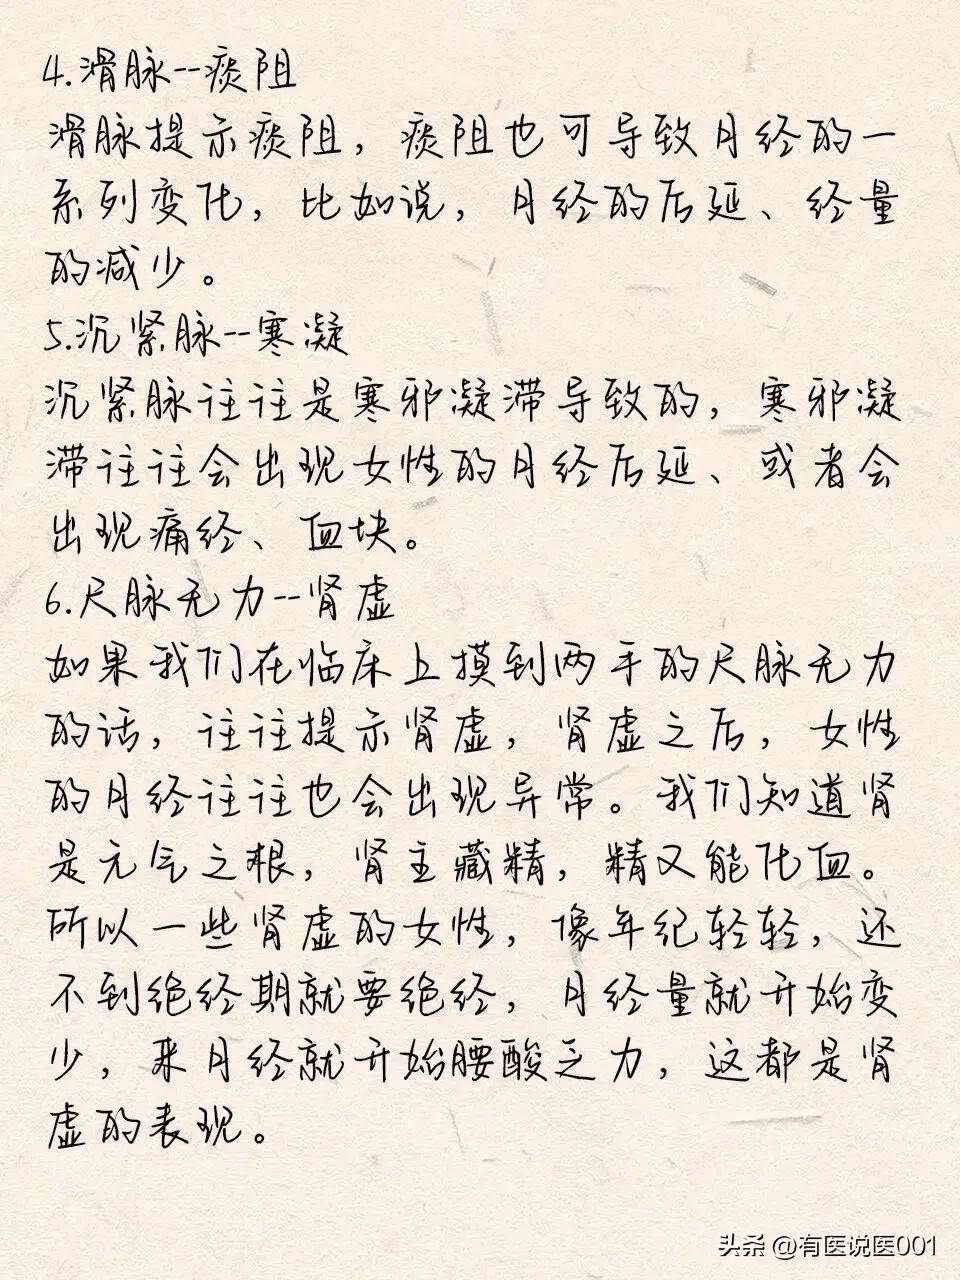 4.滑脉--痰阻
滑脉提示痰阻，痰阻也可导致月经的一
系列变化，比如说，月经的后延、经量
的减少。
5.沉紧脉--寒凝
沉紧脉往往是寒邪凝滞导致的，寒邪凝
滞往往会出现女性的月经后延、或者会
出现痛经、血块。
6.尺脉无力--肾虚
如果我们在临床上摸到两手的尺脉无力
的话，往往提示肾虚，肾虚之后，女性
的月经往往也会出现异常。我们知道肾
是元气之根，肾主藏精，精又能化血。
所以一些肾虚的女性，像年纪轻轻，还
不到绝经期就要绝经，月经量就开始变
少，来月经就开始腰酸乏力，这都是肾
虚的表现。
头条 @有医说医001